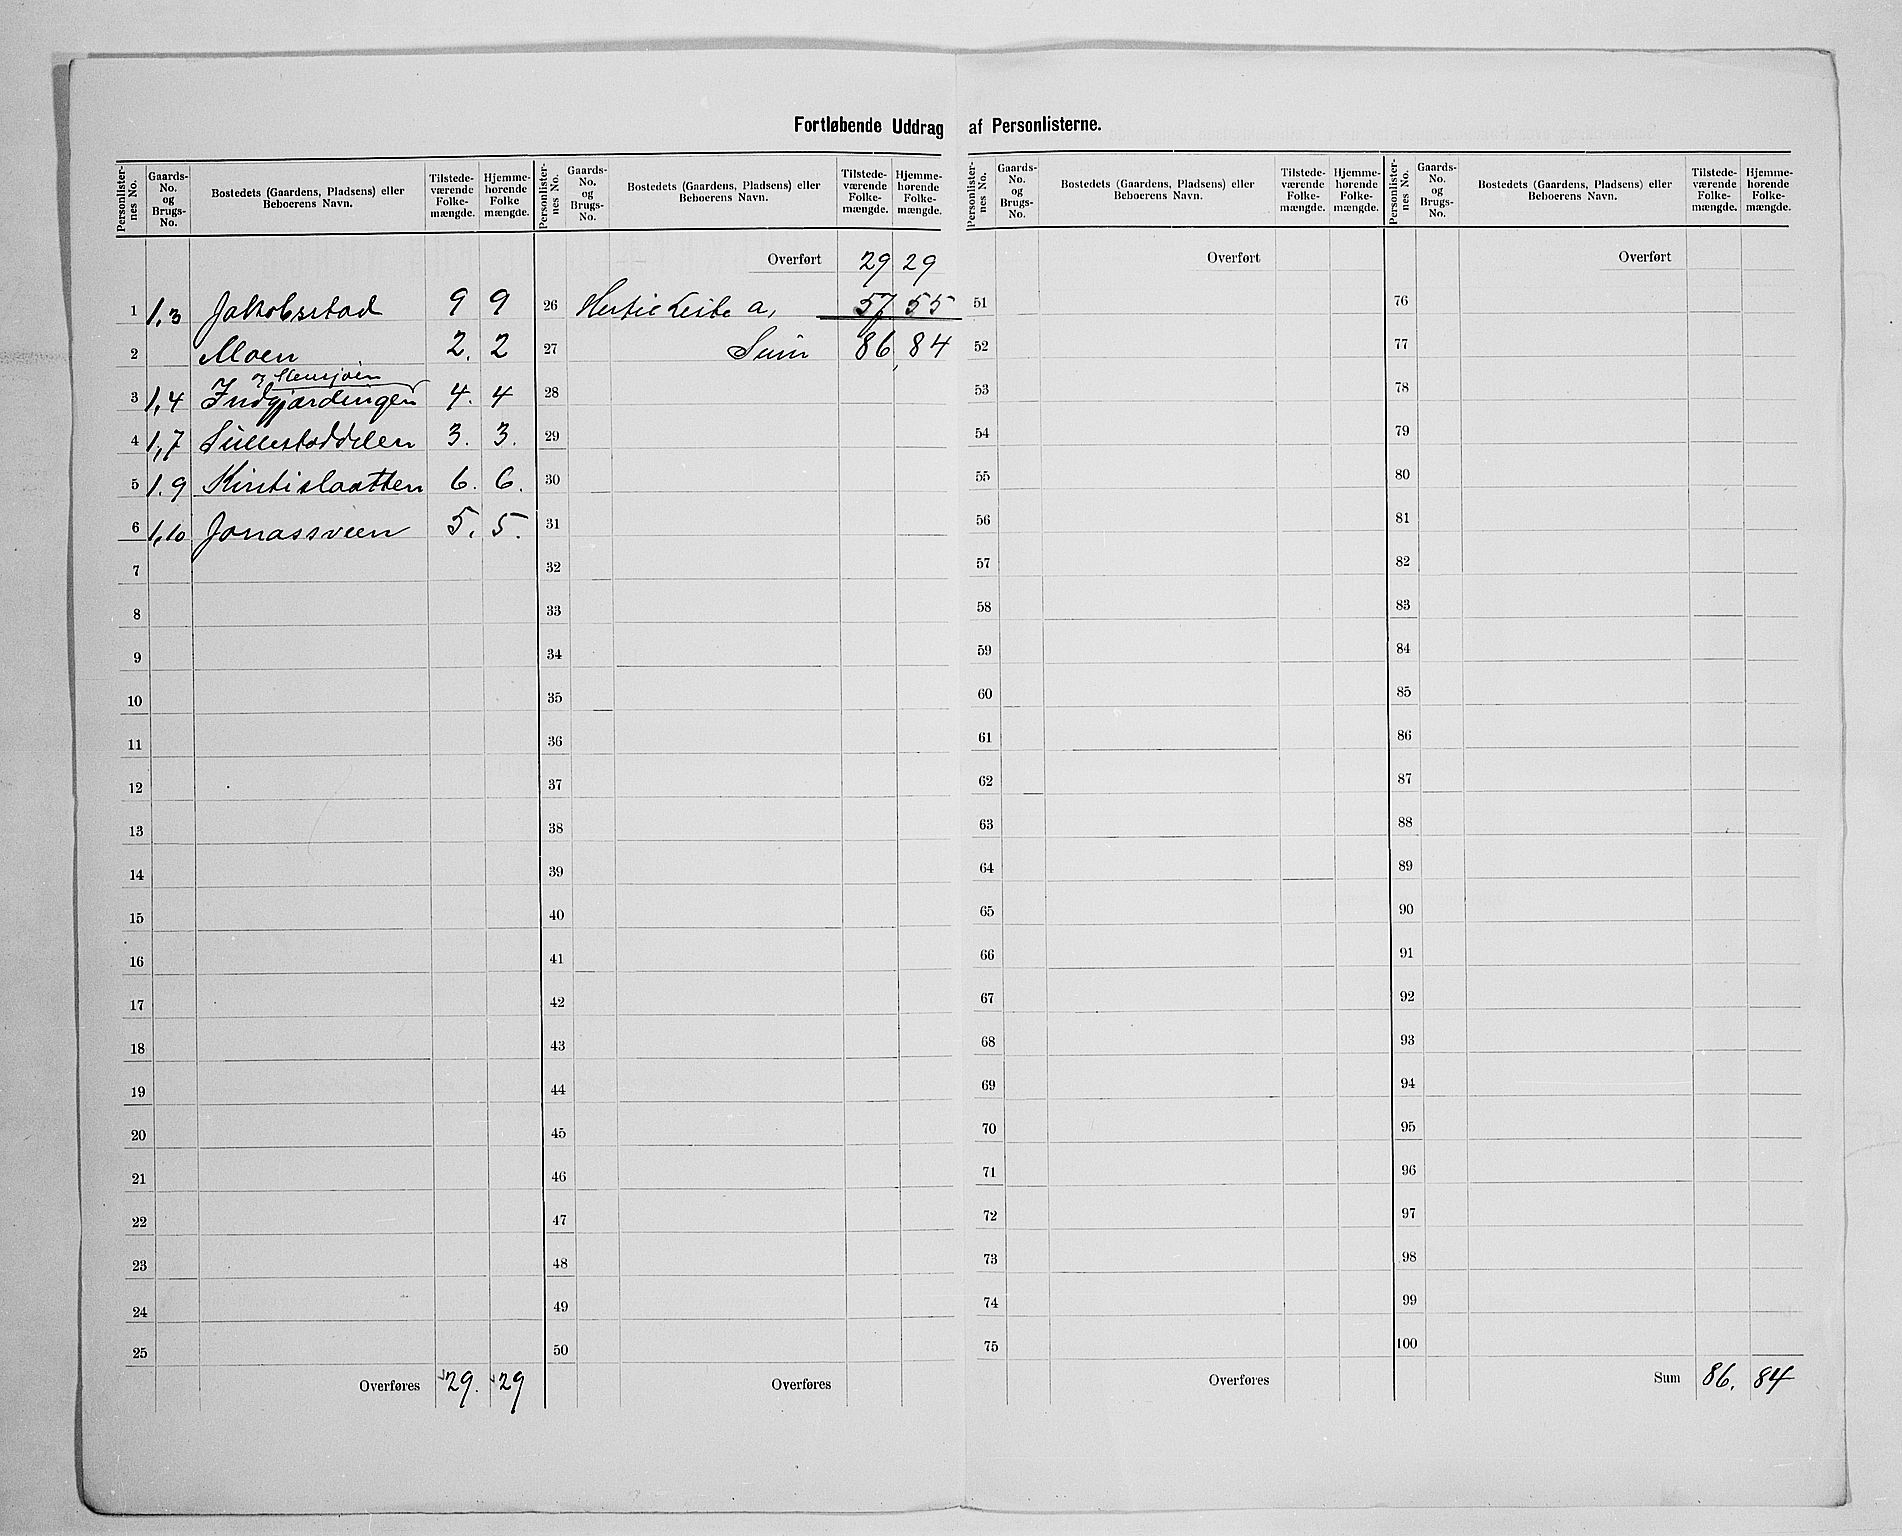 Fortløbende Uddrag af Personlisterne.
Personlister-nes No. Gaards-No. og Brugs-No. Bostedets (Gaardens, Pladsens) eller Beboerens Navn. Tilstede-værende Folke-mængde. Hjemme-hørende Folke mængde.
1 1,3 Jakobsstad 9 9
2 Moen 2. 2
3 1,4 Indgjærdingen 4. 4
4 1,7 Sillestaddelen 3. 3.
5 1.9 Kirstislaatten 6. 6.
6 1,10 Jonassveen 5. 5.
7
8
9
10
11
12
13
14
15
16
17
18
19
20
21
22
23
24
25
Overføres 29. 29
Personlister-nes No. Gaards-No. og Brugs-No. Bostedets (Gaardens, Pladsens) eller Beboerens Navn. Tilstede-værende Folke-mængde. Hjemme-hørende Folke-mængde.
Overført 29 29
26 Liste a, 57 55
27 Sum 86 84
28
29
30
31
32
33
34
35
36
37
38
39
40
41
42
43
44
45
46
47
48
49
50
Overføres
Personlister-nes No. Gaards-No. og Brugs-No. Bostedets (Gaardens, Pladsens) eller Beboerens Navn. Tilstede-værende Folke-mængde. Hjemme-hørende Folke-mængde.
Overført
51
52
53
54
55
56
57
58
59
60
61
62
63
64
65
66
67
68
69
70
71
72
73
74
75
Overføres
Personlister-nes No. Gaards-No. og Brugs-No. Bostedets (Gaardens, Pladsens) eller Beboerens Navn. Tilstede-værende Folke-mængde. Hjemme-hørende Folke-mængde.
Overført
76
77
78
79
80
81
82
83
84
85
86
87
88
89
90
91
92
93
94
95
96
97
98
99
100
Sum 86. 84